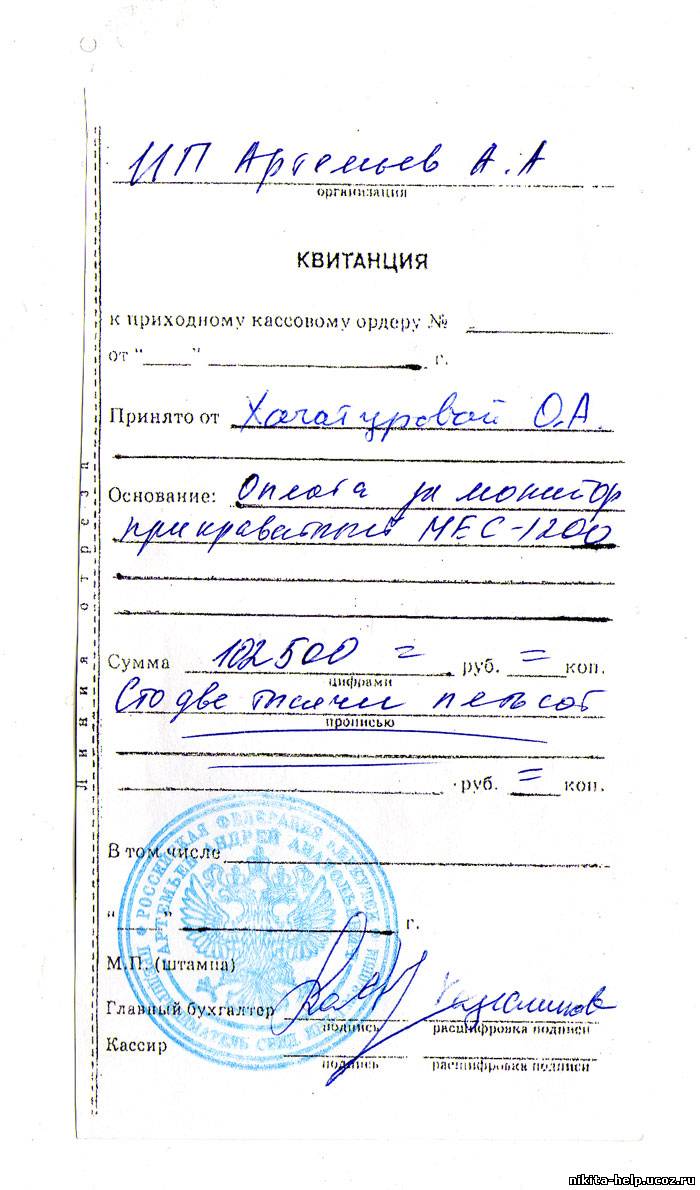 ИП Артемьев А.А
организация
КВИТАНЦИЯ
к приходному кассовому ордеру №
от " " г.
Принято от Хачатуровой О.А.
Основание: Оплата за монитор
прикраватный МЕС-1200
Сумма 102500 = руб. = коп.
цифрами
Сто две тысячи пятьсот
прописью
руб. = коп.
В том числе
" " г.
М.П. (штампа)
Главный бухгалтер
подпись расшифровка подписи
Кассир
подпись расшифровка подписи
Линия отреза
РОССИЙСКАЯ ФЕДЕРАЦИЯ
АРТЕМЬЕВ АНДРЕЙ
nikita-help.ucoz.ru